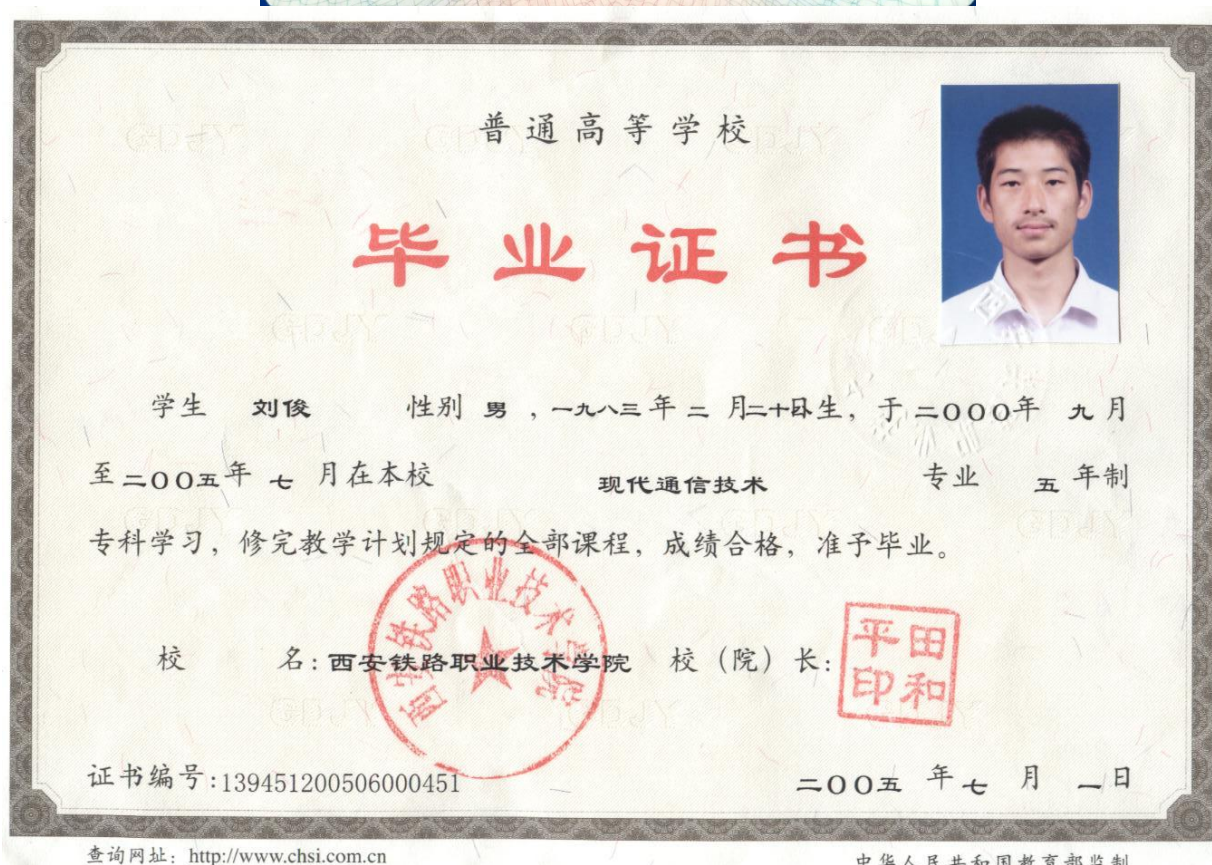 普通高等学校
毕业证书
学生 刘俊 性别 男 ，一九八三年 二 月二十日生，于二〇〇〇年 九月
至二〇〇五年 七 月在本校 现代通信技术 专业 五 年制
专科学习，修完教学计划规定的全部课程，成绩合格，准予毕业。
校 名：西安铁路职业技术学院 校（院）长：
西安铁路职业技术学院
田和平印
证书编号:139451200506000451 二〇〇五 年七 月 一日
查询网址：http://www.chsi.com.cn 中华人民共和国教育部监制